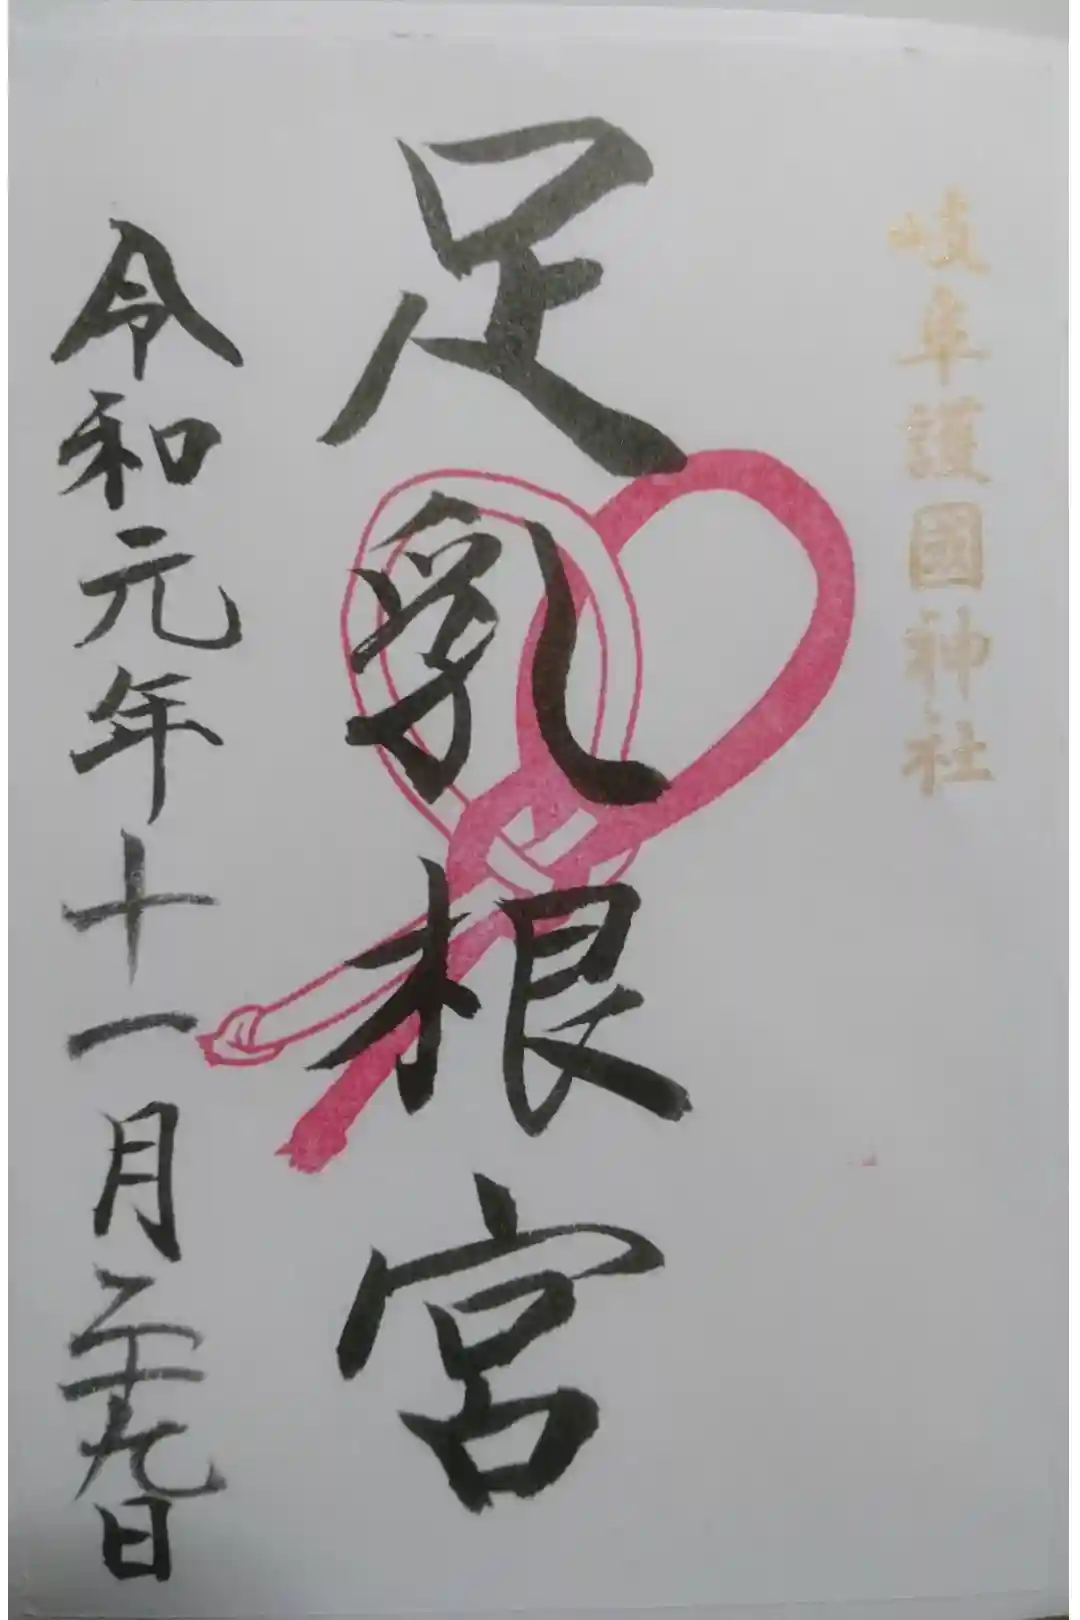 岐阜護國神社
足乳根宮
令和元年十一月二十九日